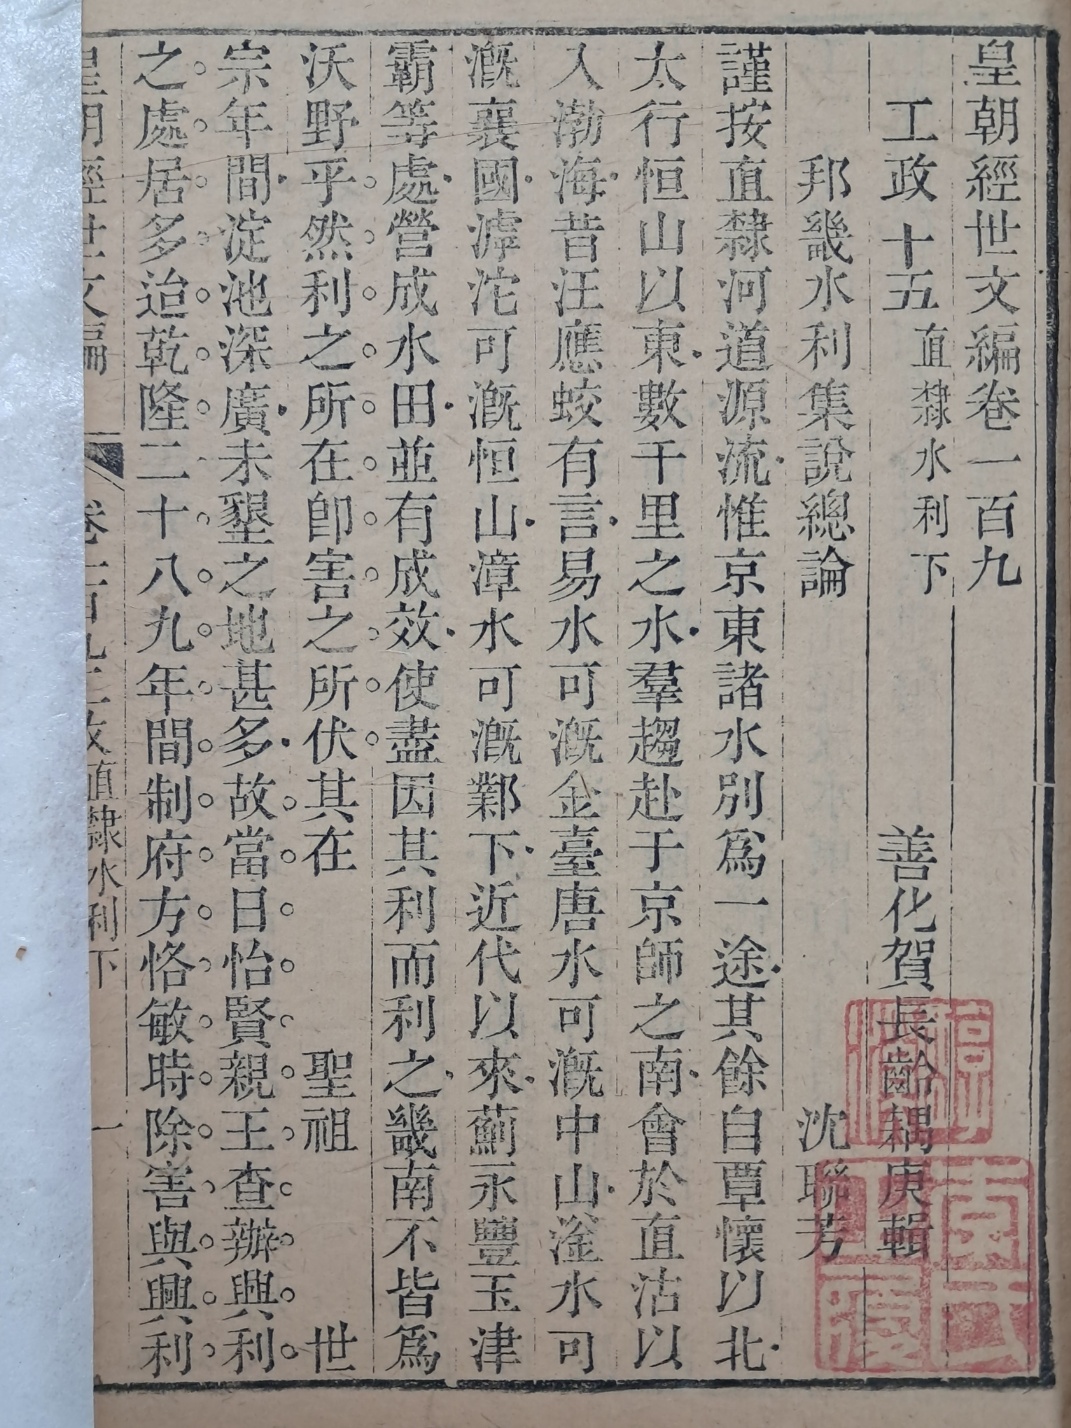 皇朝經世文編卷一百九
工政十五直隸水利下 善化賀長齡耦庚輯
邦畿水利集說總論 沈聯芳
謹按直隸河道源流惟京東諸水別爲一途其餘自覃懷以北
太行恒山以東數千里之水羣趨赴于京師之南會於直沽以
入渤海昔汪應蛟有言易水可漑金臺唐水可漑中山滏水可
漑襄國滹沱可漑恒山漳水可漑鄴下近代以來薊永豐玉津
霸等處營成水田並有成效使盡因其利而利之畿南不皆爲
沃野乎然利之所在卽害之所伏其在 聖祖 世
宗年間淀池深廣未墾之地甚多故當日怡賢親王查辦興利
之處居多迨乾隆二十八九年間制府方恪敏時除害與興利
皇朝經世文編 卷一百九工政直隸水利下 一